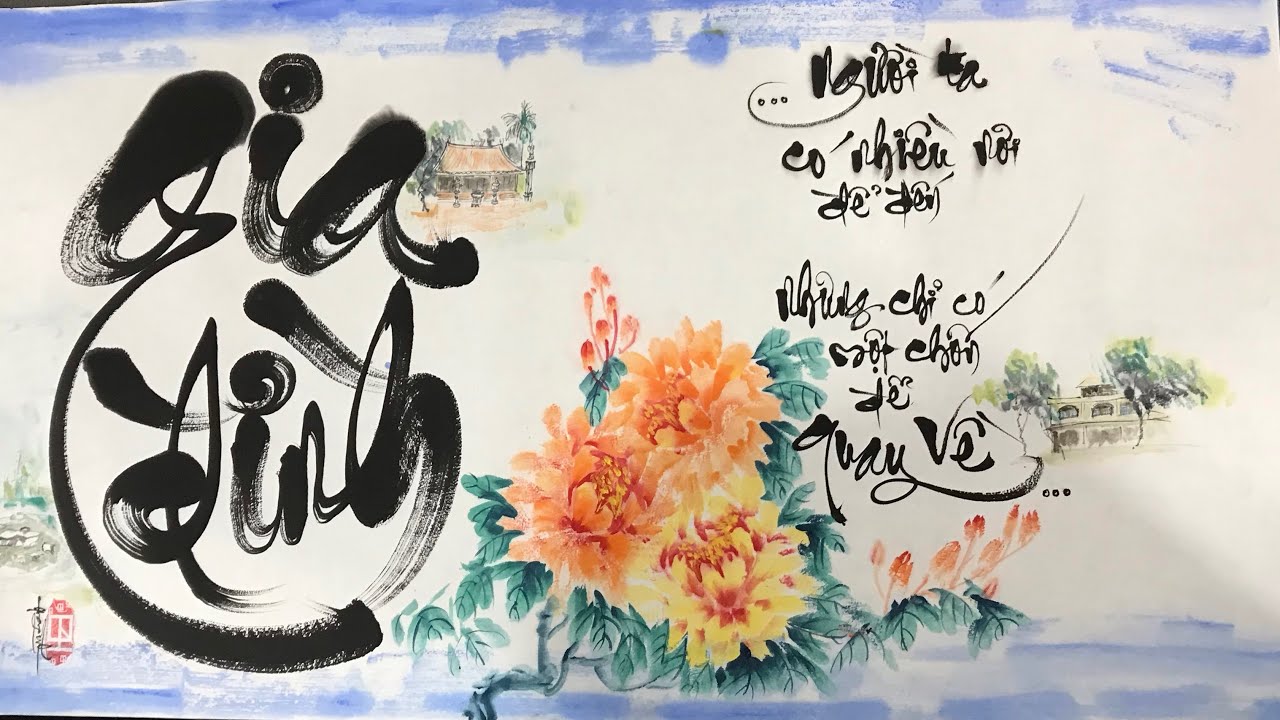 Gia
Đình
... Người ta
có nhiều nơi
để đến
Nhưng chỉ có
một chốn
để
quay về ...